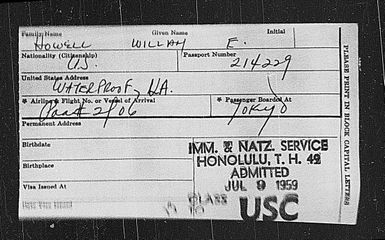 Family Name Given Name Initial
HOWELL WILLIAM E.
Nationality (Citizenship) Passport Number
U.S. 214229
United States Address
WATERPROOF, LA.
* Airline & Flight No. or Vessel of Arrival * Passenger Boarded At
2/06 TOKYO
Permanent Address
Birthdate
IMM. & NATZ. SERVICE
HONOLULU, T. H. 49
Birthplace
ADMITTED
Visa Issued At
JUL 9 1959
CLASS
TO USC
PLEASE PRINT IN BLOCK CAPITAL LETTERS